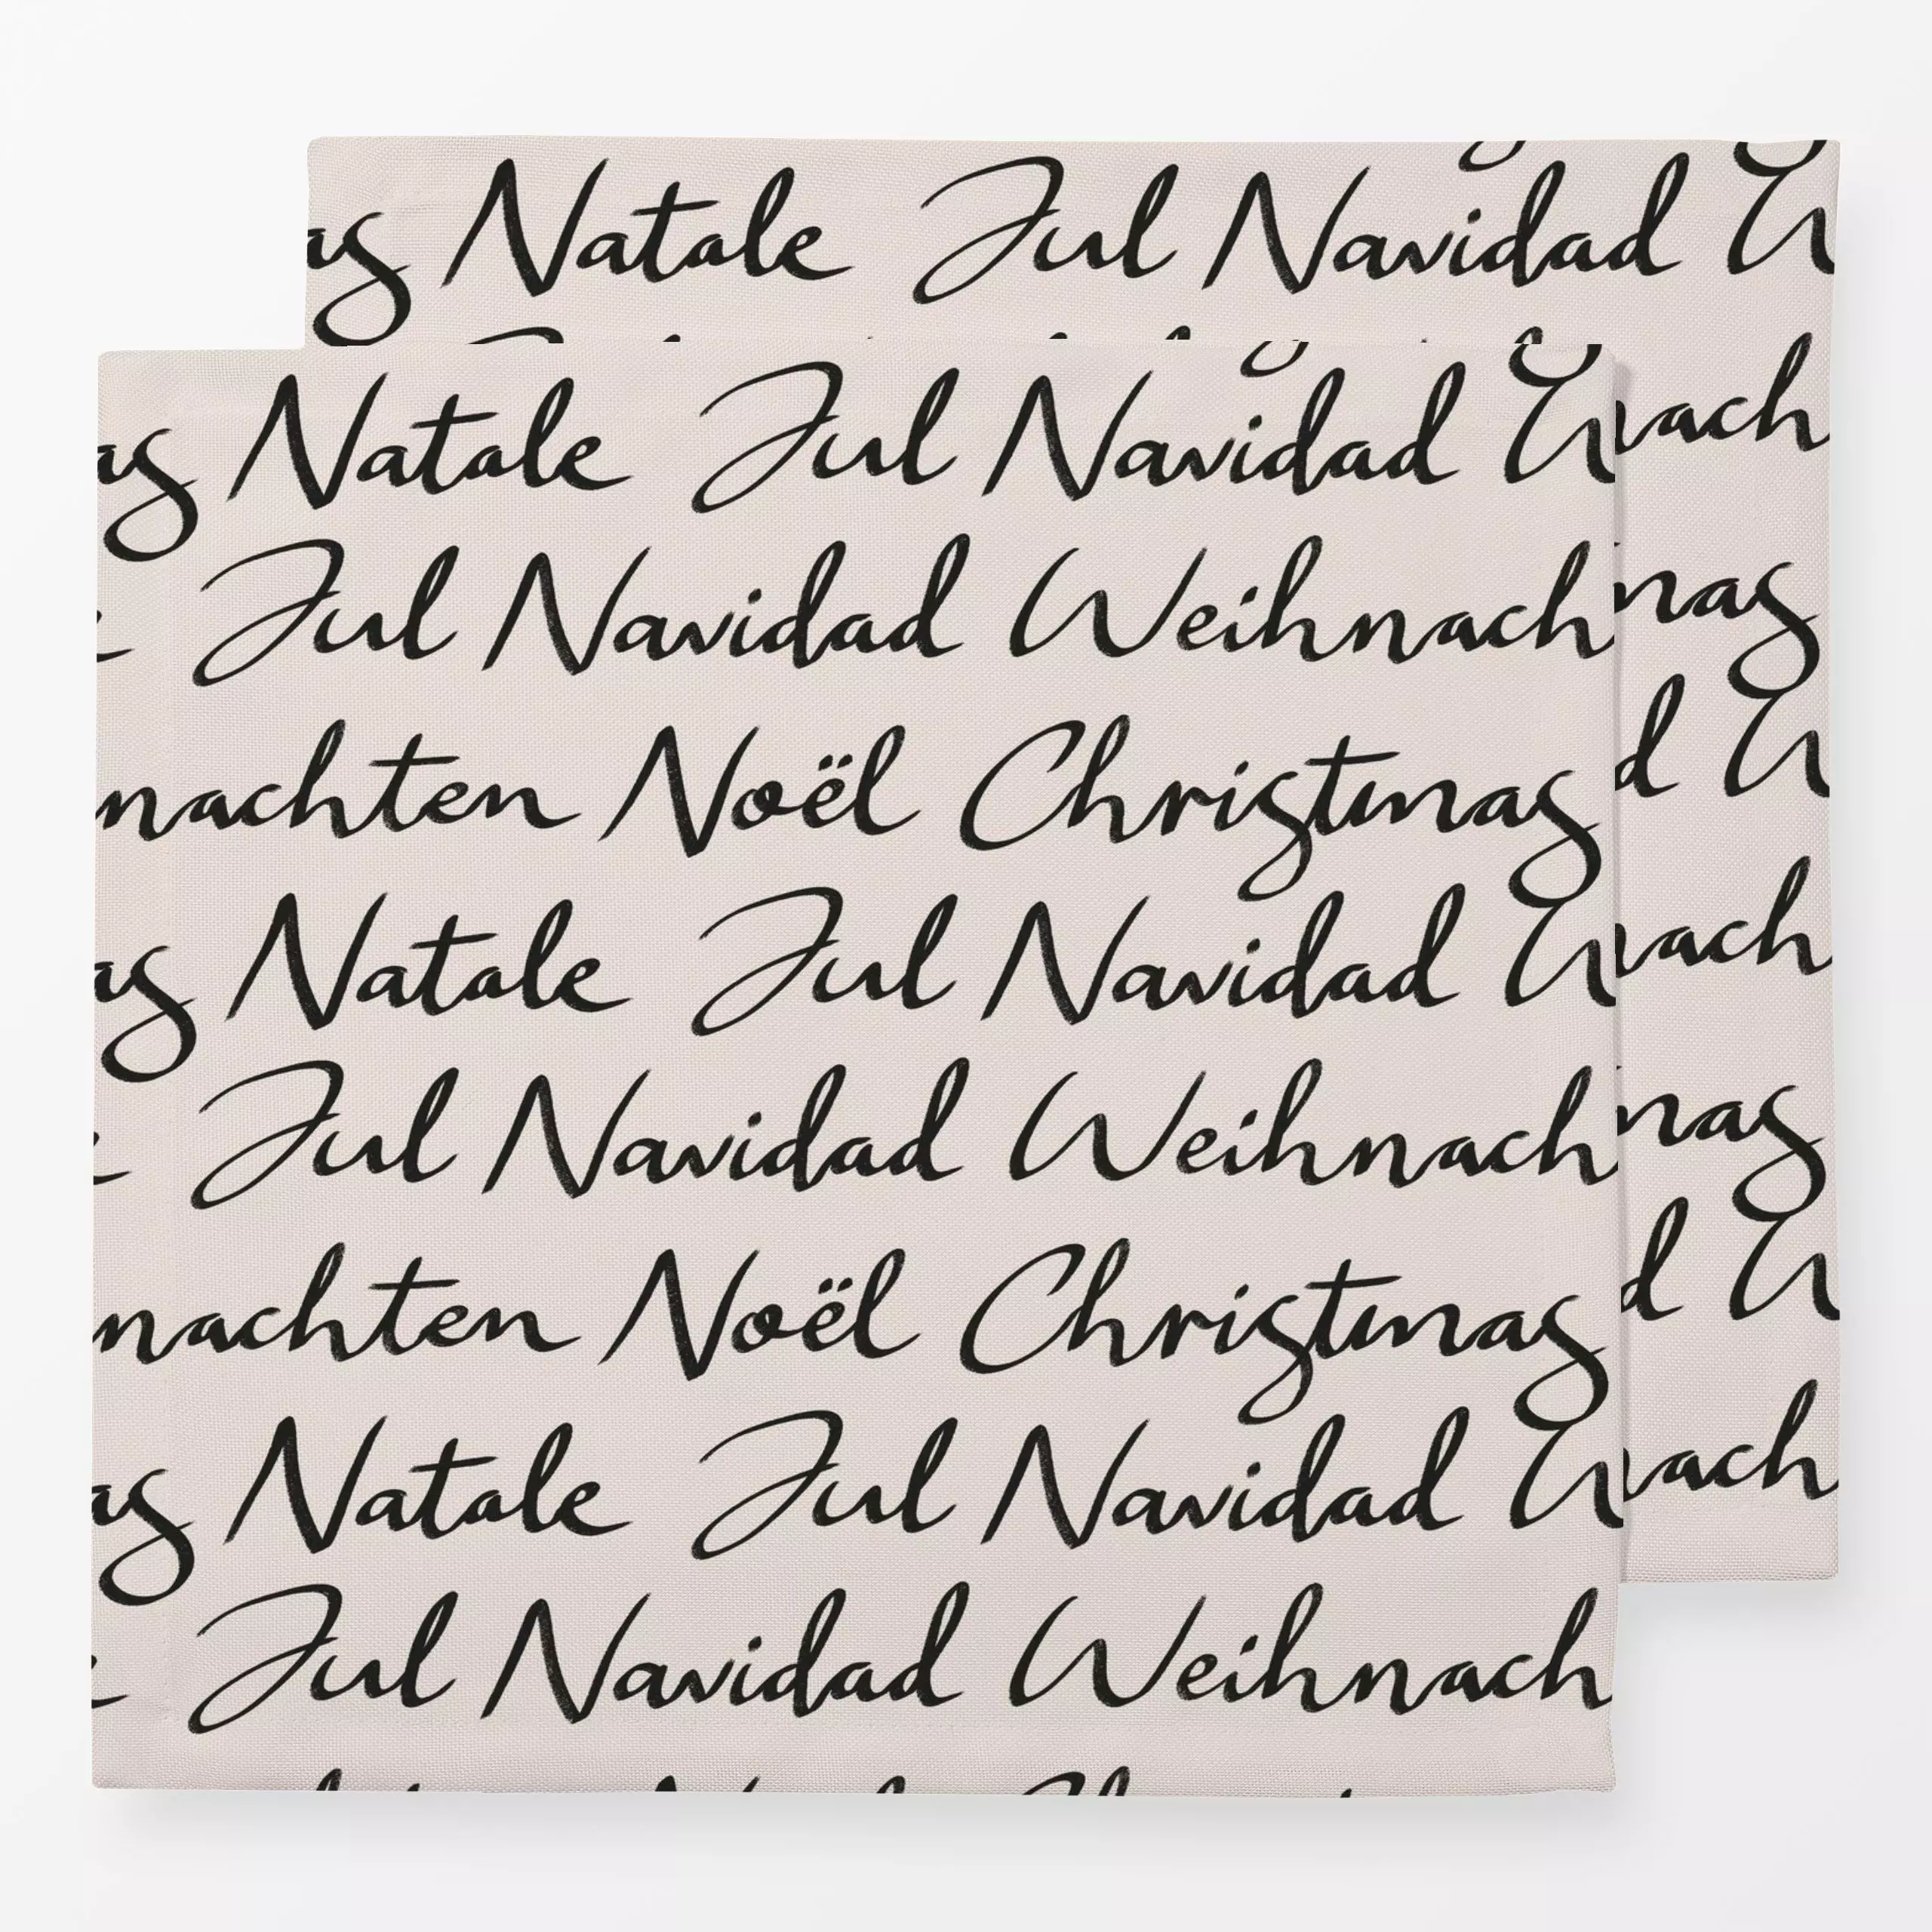 as Natale Jul Navidad W
as Natale Jul Navidad W
Jul Navidad Weihnach
nachten Noël Christmas
as Natale Jul Navidad W
Jul Navidad Weihnach
nachten Noël Christmas
as Natale Jul Navidad W
Jul Navidad Weihnach
ach
mas
d W
ach
mas
d W
ach